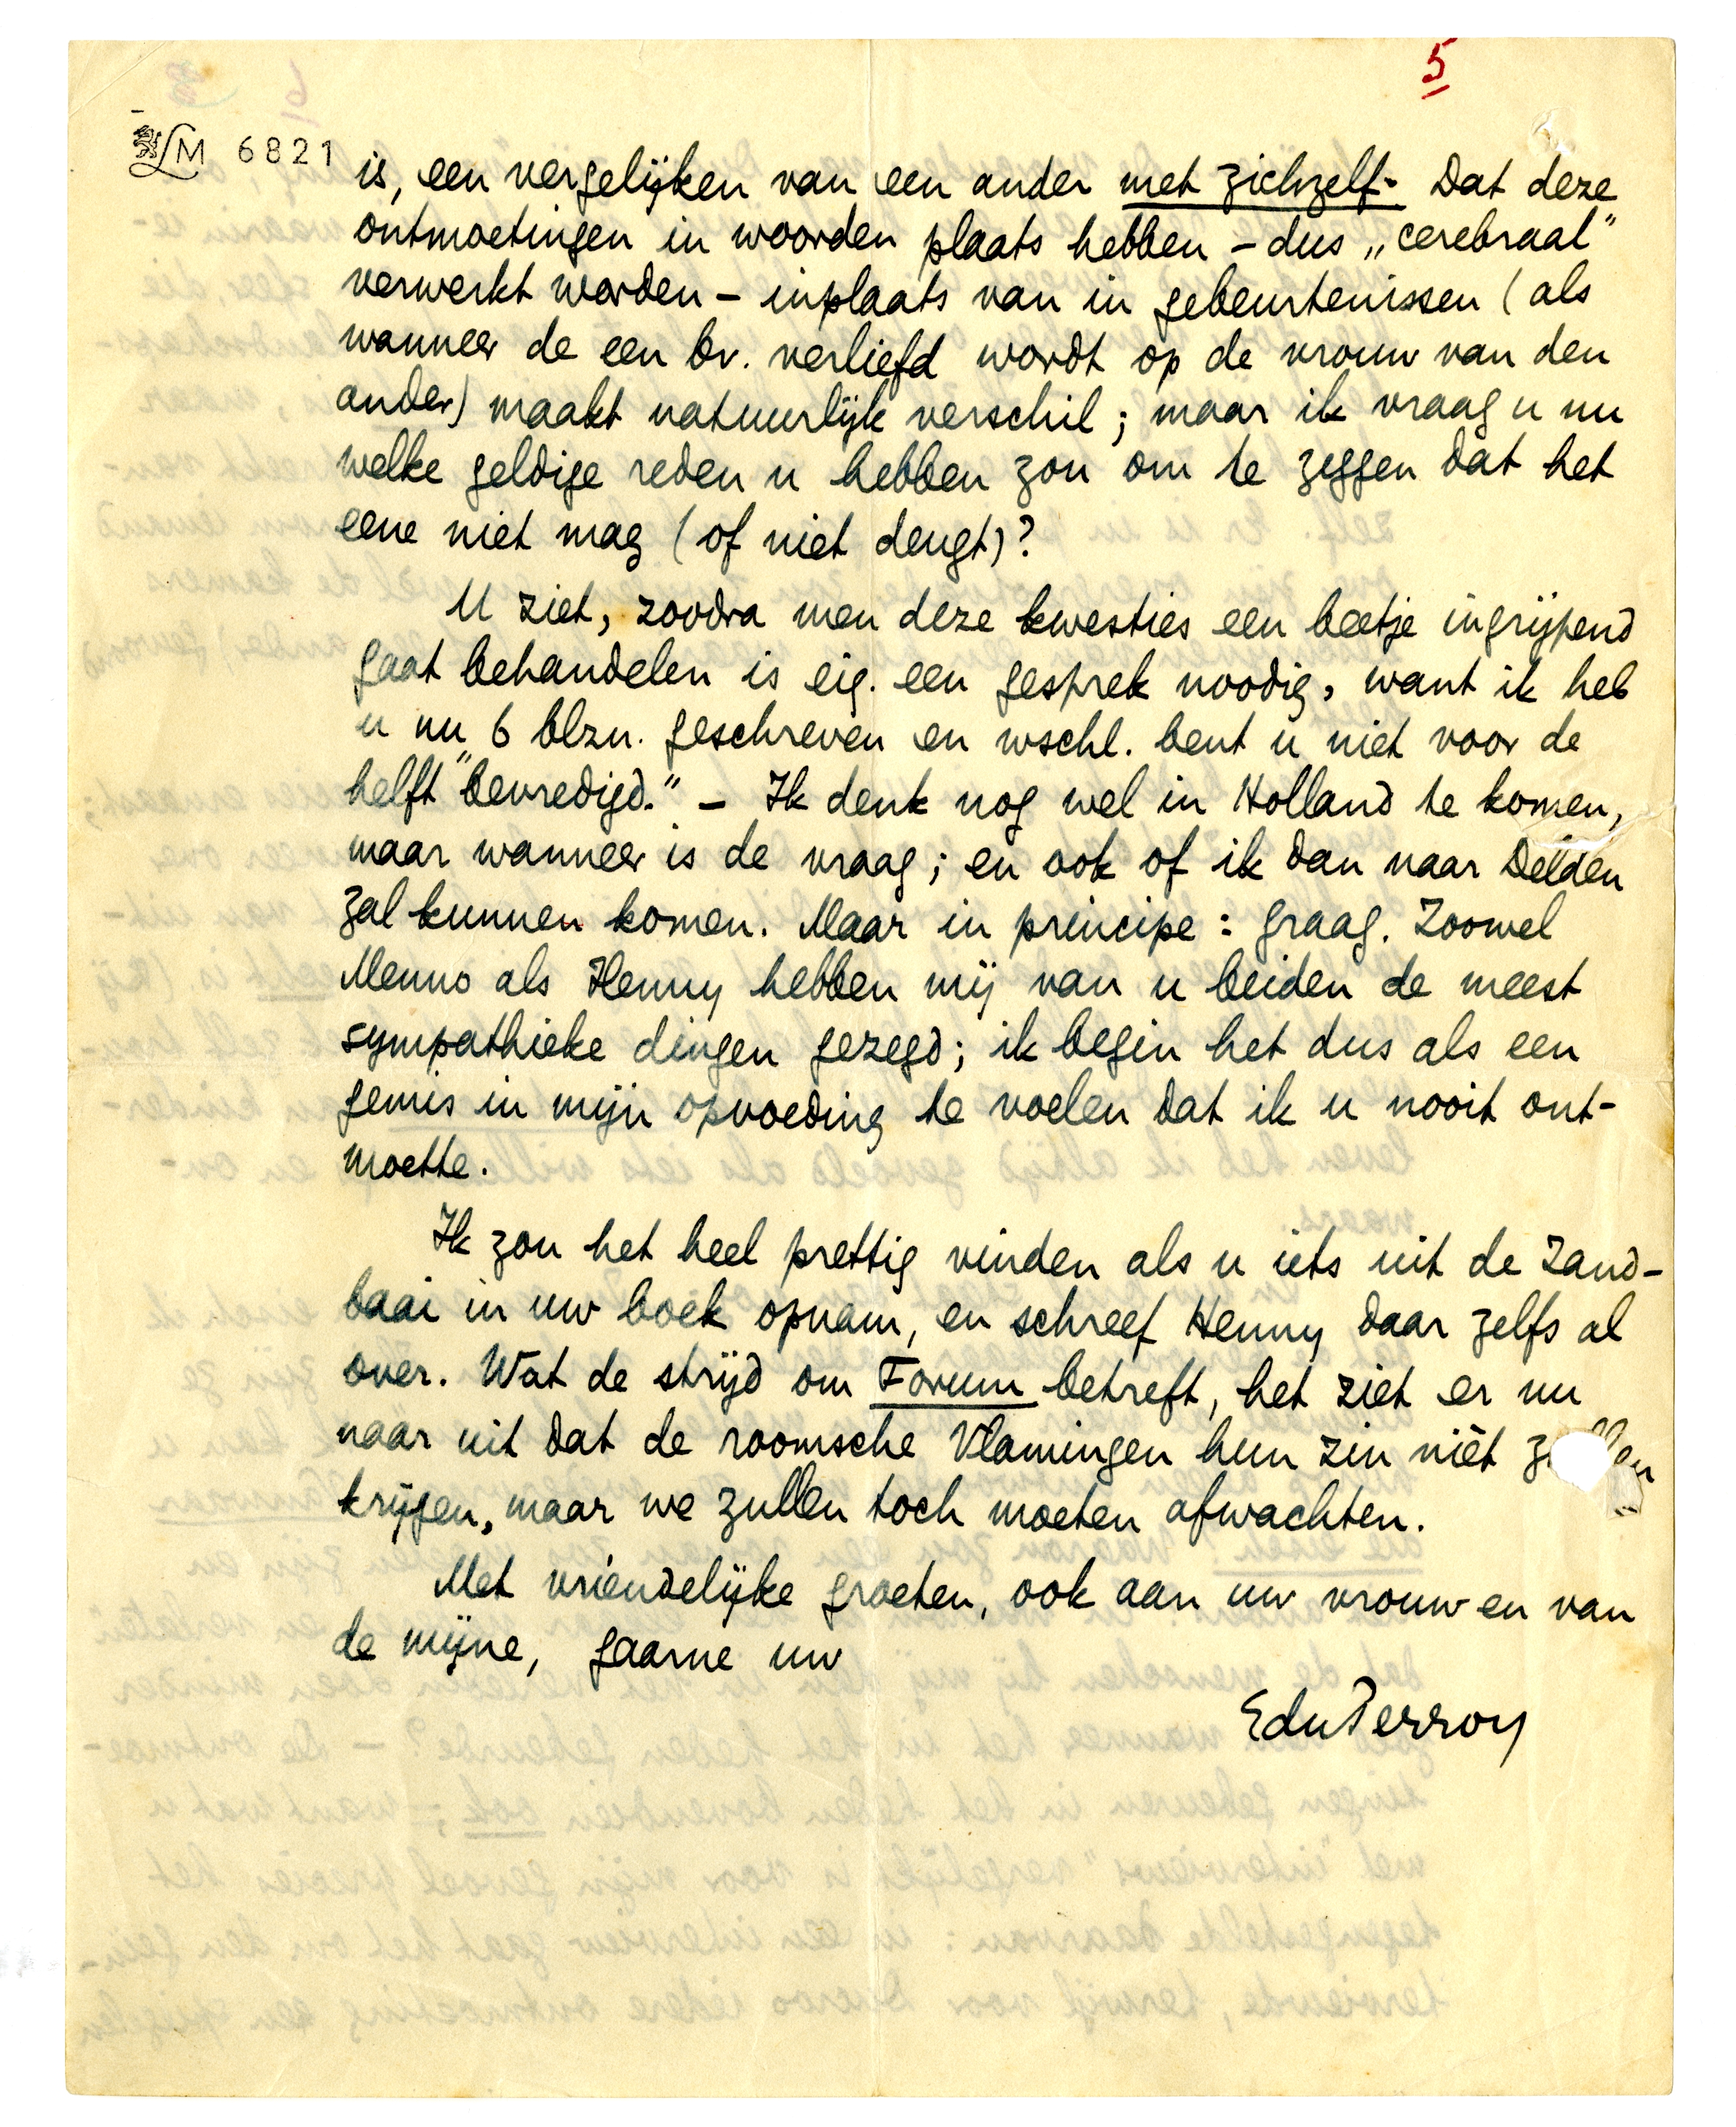 5
LM 6821
is, een vergelijken van een ander met zichzelf. Dat deze
ontmoetingen in woorden plaats hebben – dus „cerebraal”
verwerkt worden – inplaats van in gebeurtenissen (als
wanneer de een bv. verliefd wordt op de vrouw van den
ander) maakt natuurlijk verschil; maar ik vraag u nu
welke geldige reden u hebben zou om te zeggen dat het
eene niet mag (of niet deugt)?
U ziet, zoodra men deze kwesties een beetje ingrijpend
gaat behandelen is eig. een gesprek noodig, want ik heb
u nu 6 blzn. geschreven en wschl. bent u niet voor de
helft "bevredigd." – Ik denk nog wel in Holland te komen,
maar wanneer is de vraag; en ook of ik dan naar Delden
zal kunnen komen. Maar in principe: graag. Zoowel
Menno als Henny hebben mij van u beiden de meest
sympathieke dingen gezegd; ik begin het dus als een
gemis in mijn opvoeding te voelen dat ik u nooit ont-
moette.
Ik zou het heel prettig vinden als u iets uit de Zand-
baai in uw boek opnam, en schreef Henny daar zelfs al
over. Wat de strijd om Forum betreft, het ziet er nu
náár uit dat de roomsche Vlamingen hun zin níét zullen
krijgen, maar we zullen toch moeten afwachten.
Met vriendelijke groeten, ook aan uw vrouw en van
de mijne, gaarne uw
EduPerron